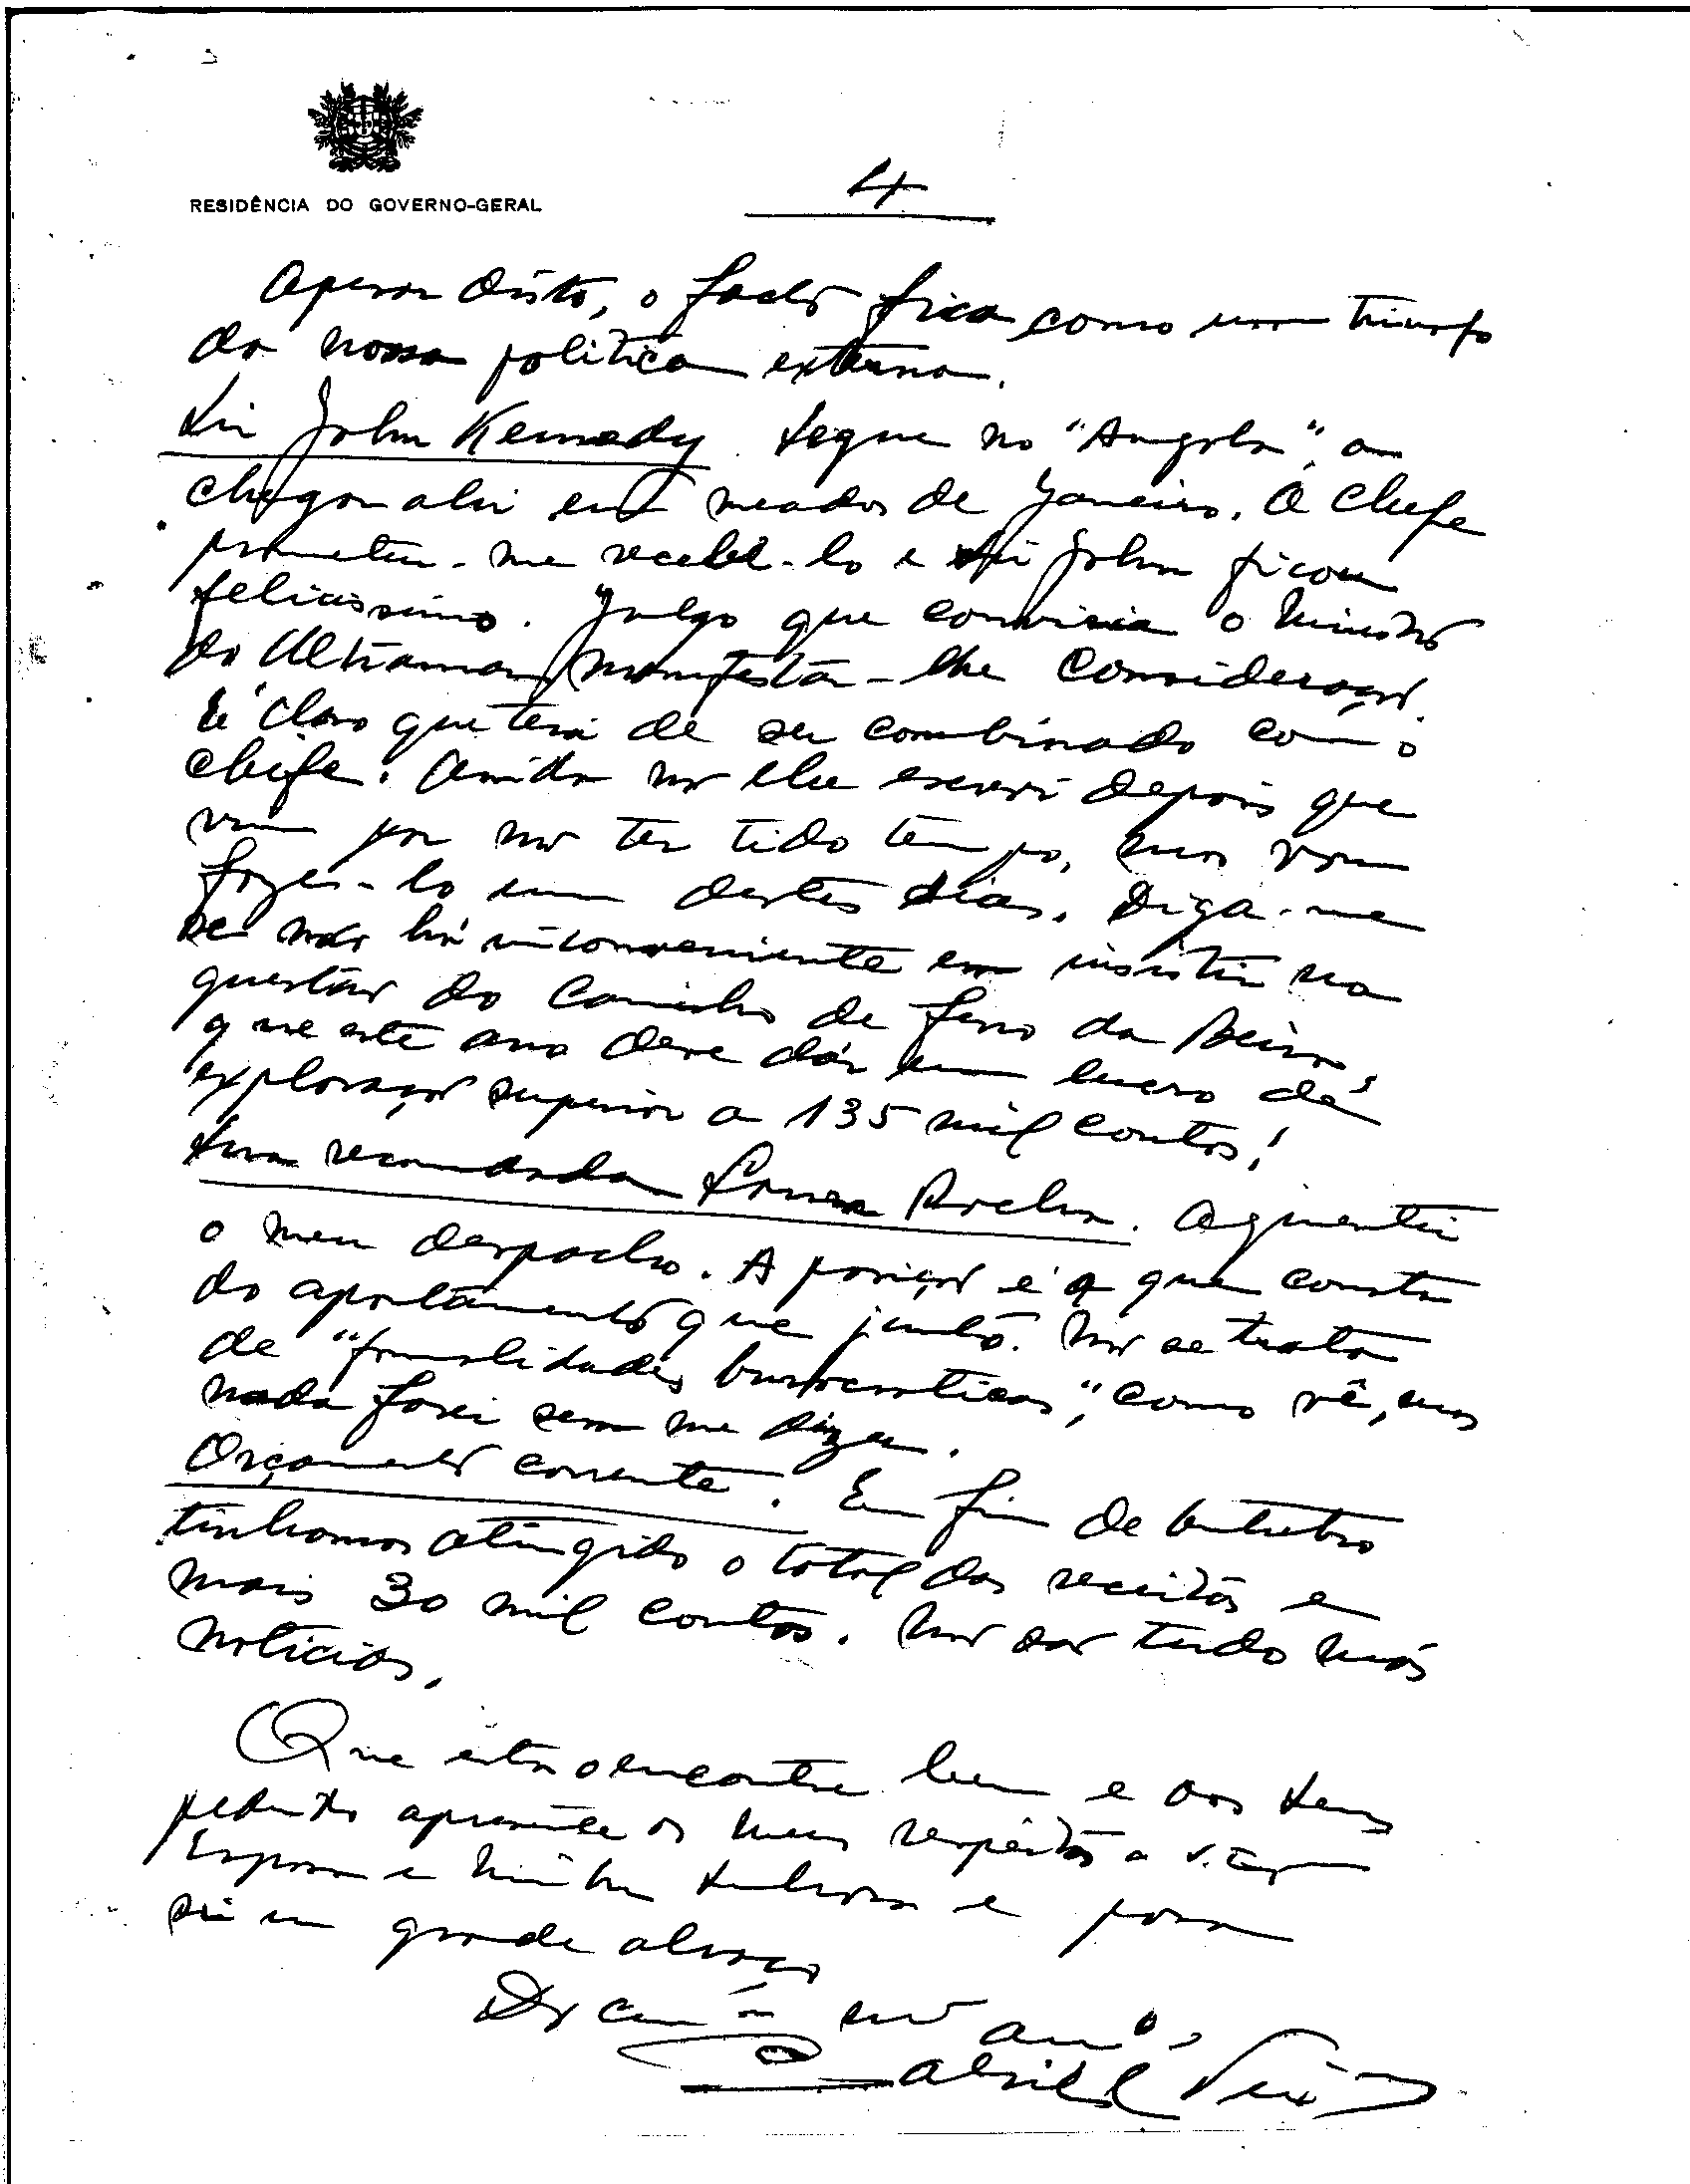 RESIDÊNCIA DO GOVERNO-GERAL
4
Apesar disto, o facto fica como um triunfo
da nossa política externa.
Sir John Kennedy. Segue no "Angola", a
chegar ahi em meados de Janeiro. O Chefe
prometeu-me recebê-lo e Sir John ficou
felicissimo. Julgo que conviria o Ministro
do Ultramar manifestar-lhe consideração.
É claro que terá de ser combinado com o
Chefe. Ainda não lhe escrevi depois que
vim por não ter tido tempo, mas vou
fazer-lo um destes dias. Diga-me
se não há inconveniente em insistir na
questão do Caminho de ferro da Beira,
que este ano deve dár um lucro de
exploração superior a 135 mil contos!
Sua recomendada Rocha. Aguentei
o meu despacho. A posição é a que consta
do apontamento que junto. Não se trata
de "formalidades burocraticas", como vê, mas
nada farei sem me dizer.
Orçamento corrente. Em fim de Outubro
tinhamos atingido o total das receitas e
mais 30 mil contos. Não são tudo más
noticias.
Que esta o encontre bem e aos seus
pedindo apresente os meus respeitos a s.
Esposa e minha Senhora e para
si um grande abraço
Do am.º
Gabriel Teix.